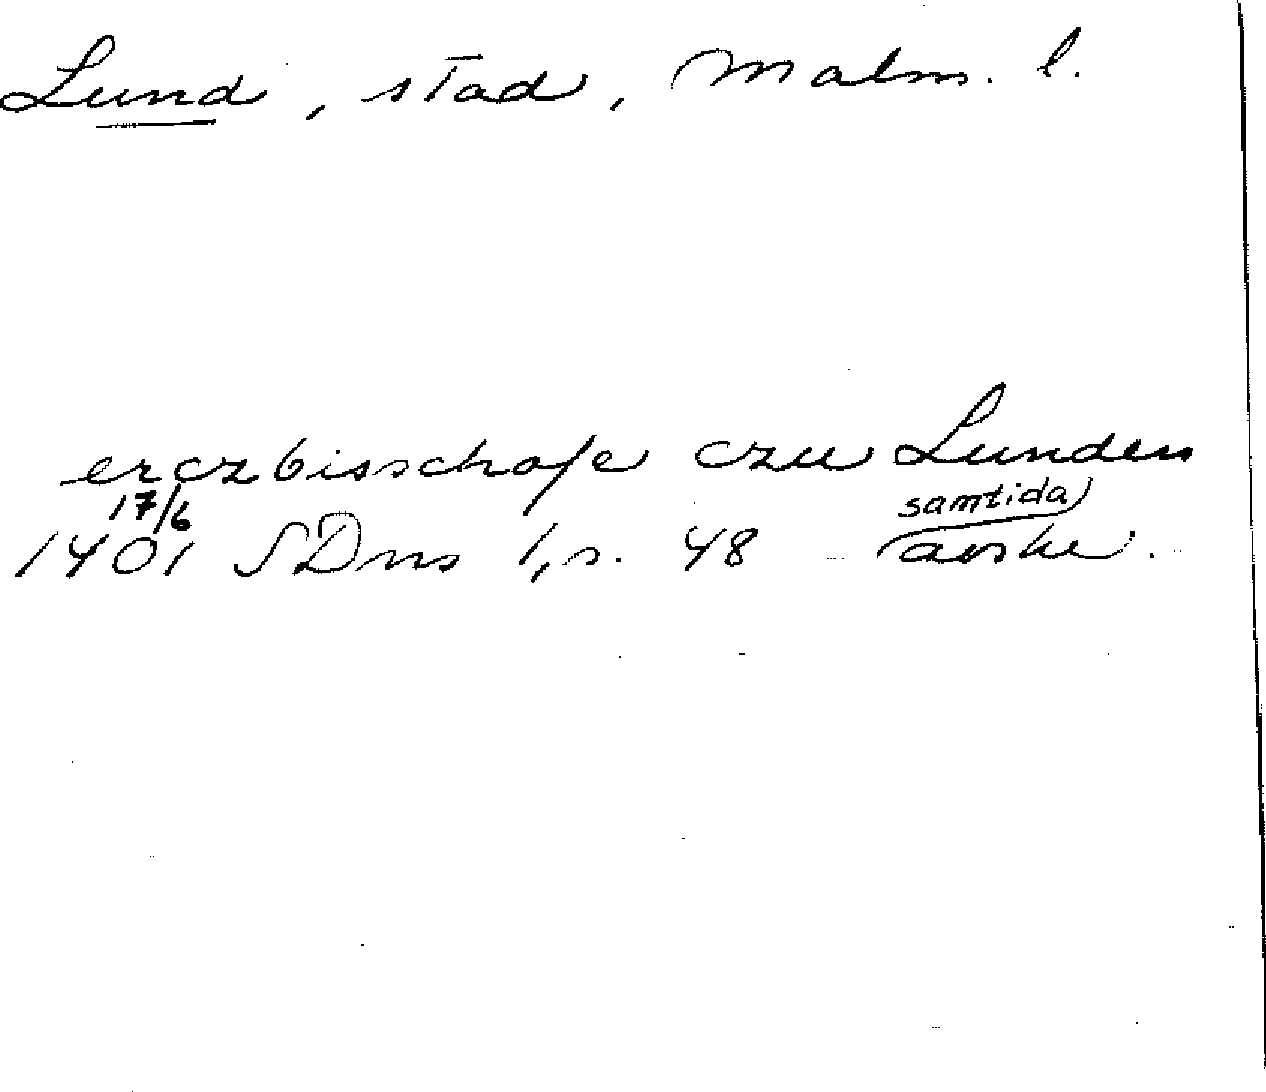 Lund, stad, Malm. l.
erczbisschofe czu Lunden
17/6 samtida
1401 SDns 1, s. 48 avskr.